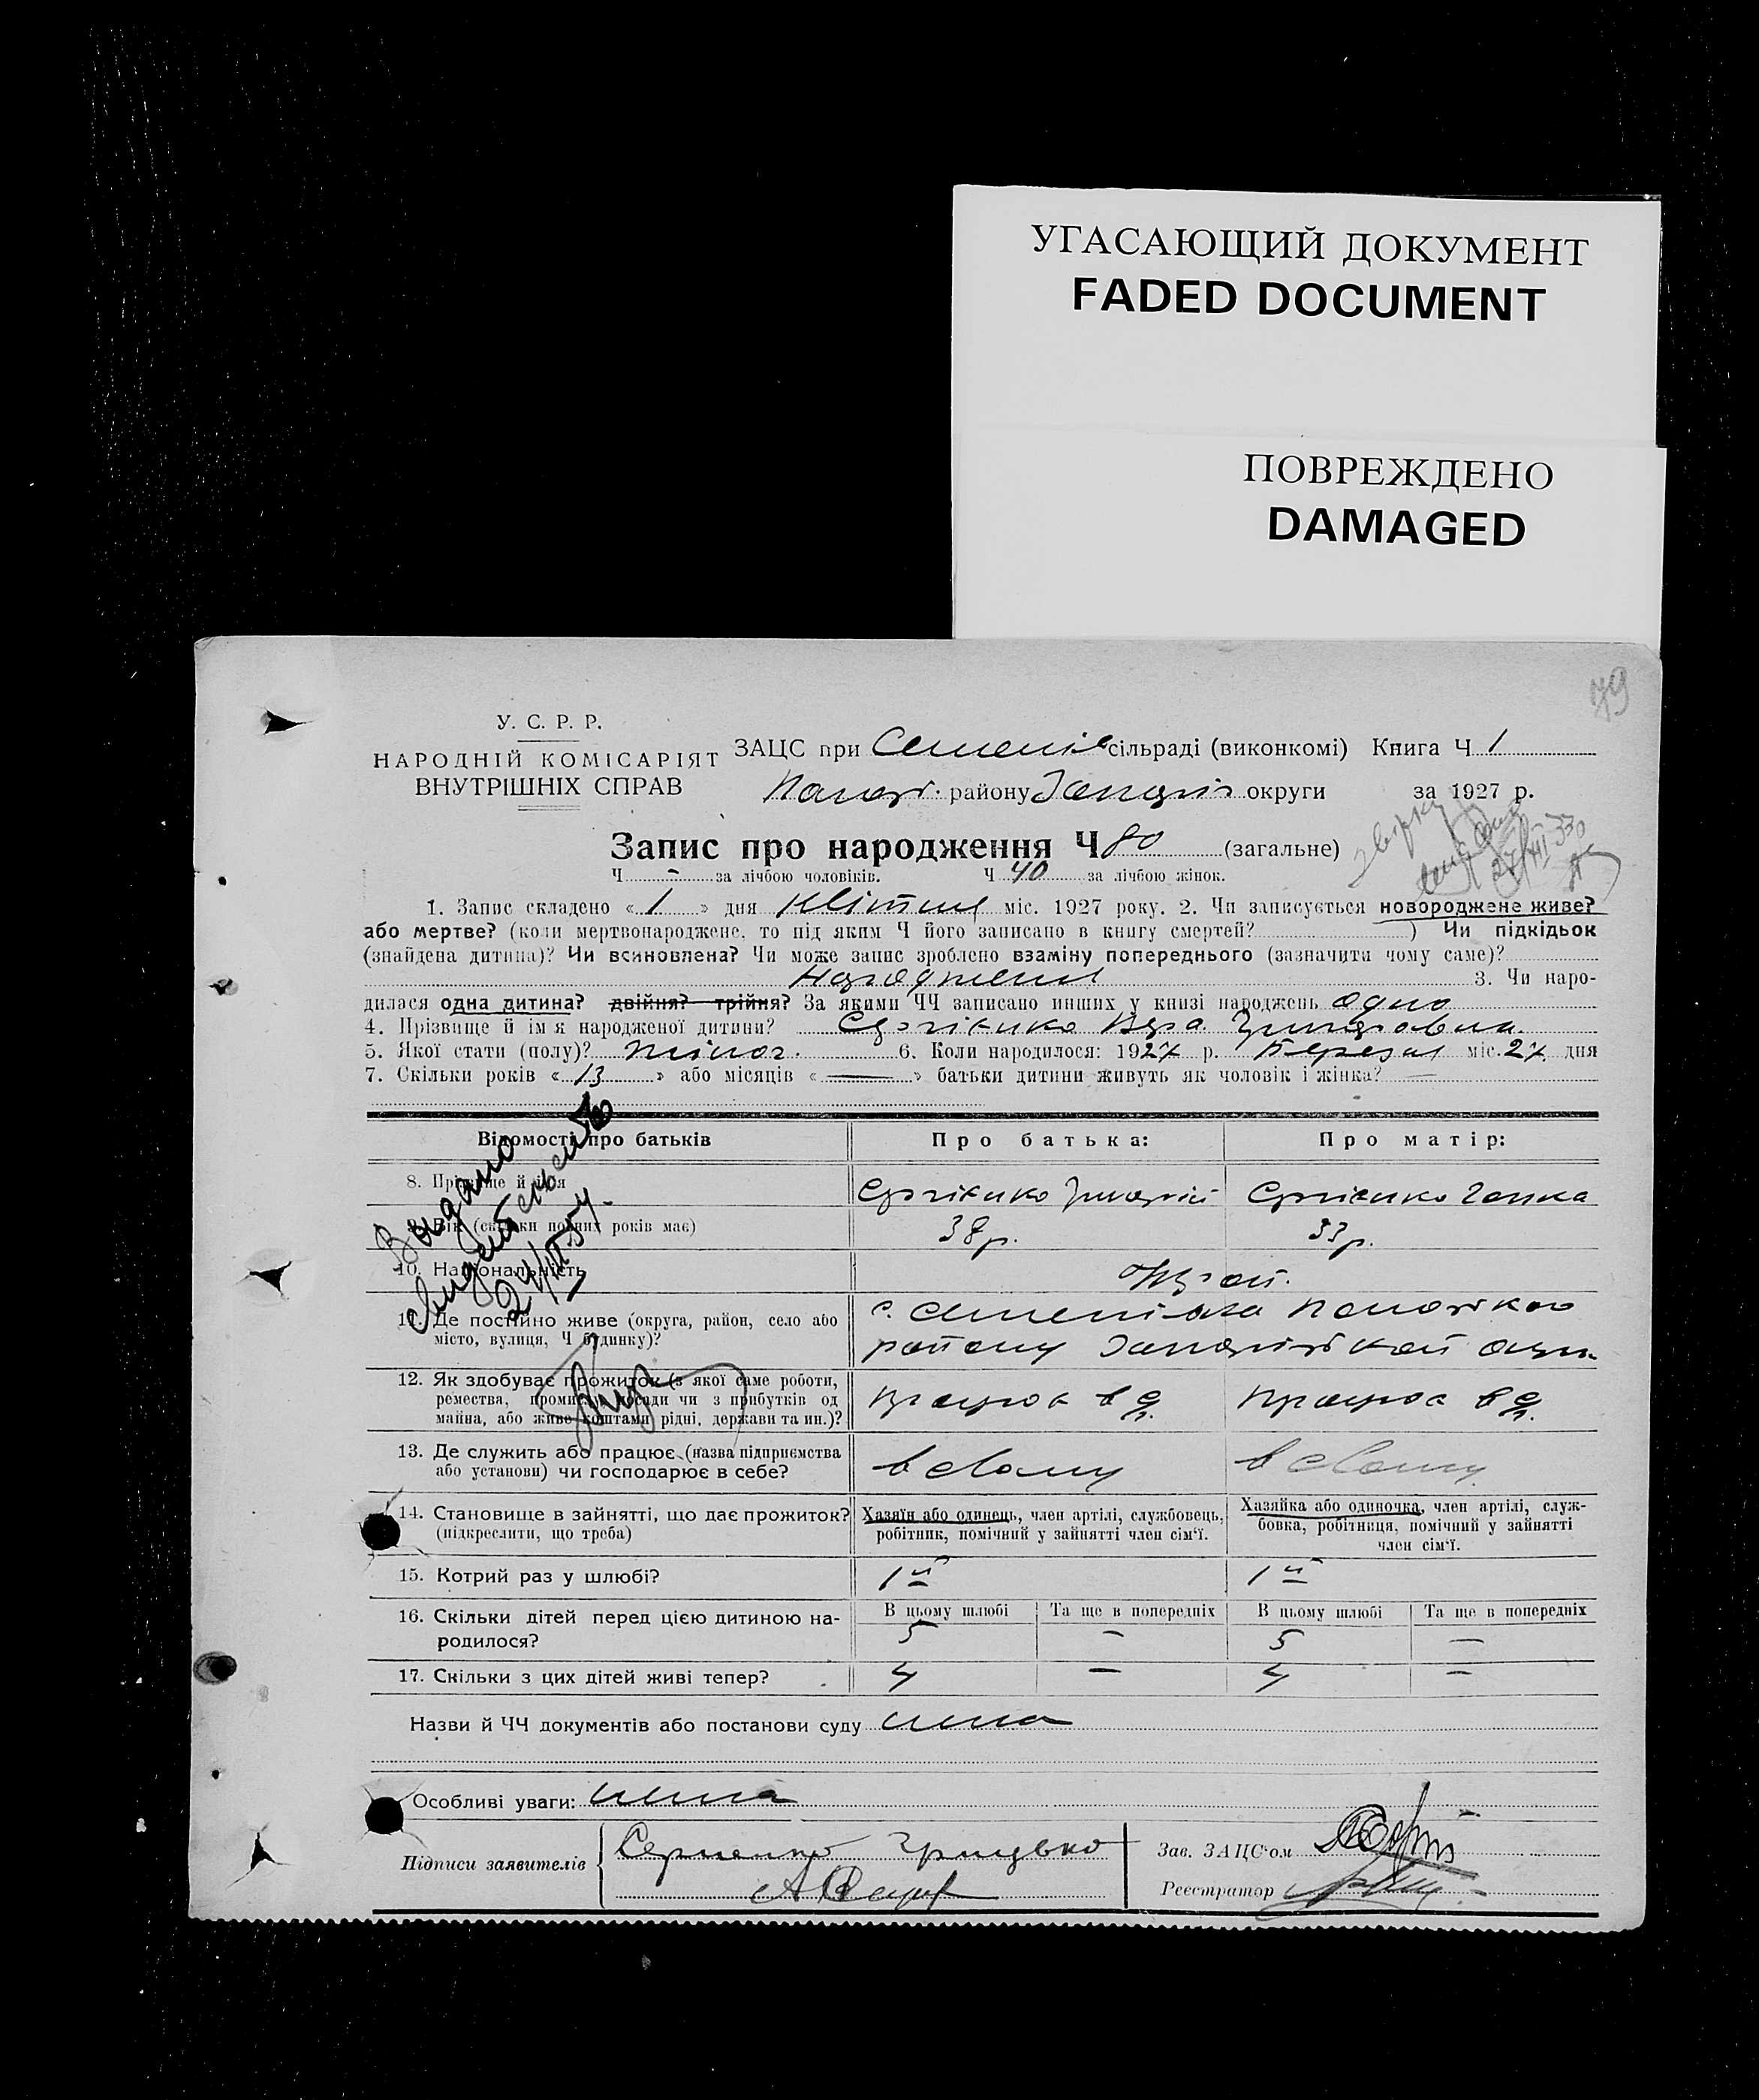 УГАСАЮЩИЙ ДОКУМЕНТ
FADED DOCUMENT
ПОВРЕЖДЕНО
DAMAGED
79
У. С. Р. Р.
НАРОДНІЙ КОМІСАРІЯТ
ВНУТРІШНІХ СПРАВ
ЗАЦС при Семенів сільраді (виконкомі) Книга Ч 1
району округи за 1927 р.
Запис про народження Ч 80 (загальне)
Ч - за лічбою чоловіків. Ч 40 за лічбою жінок.
1. Запис складено « 1 » дня Квітня міс. 1927 року. 2. Чи записується новороджене живе?
або мертве? (коли мертвонароджене, то під яким Ч його записано в книгу смертей? ) Чи підкідьок
(знайдена дитина)? Чи всиновлена? Чи може запис зроблено взаміну попереднього (зазначити чому саме)?
народження 3. Чи наро-
дилася одна дитина? двійня? трійня? За якими ЧЧ записано инших у книзі народжень одно
4. Прізвище й ім'я народженої дитини? Віра
5. Якої стати (полу)? жіноч. 6. Коли народилося: 1927 р. Березня міс. 27 дня
7. Скільки років « 13 » або місяців « — » батьки дитини живуть як чоловік і жінка? —
Відомості про батьків
Про батька:
Про матір:
8. Прізвище й ім'я
Ганка
9. Вік (скільки повних років має)
38 р.
33 р.
10. Національність
11. Де постійно живе (округа, район, село або
місто, вулиця, Ч будинку)?
с. Семенівка
району округи
12. Як здобуває прожиток (з якої саме роботи,
ремества, промислу, посади чи з прибутків од
майна, або живе коштами рідні, держави та ин.)?
Працює в с/г.
Працює в с/г.
13. Де служить або працює (назва підприємства
або установи) чи господарює в себе?
в свому
в свому
14. Становище в зайнятті, що дає прожиток?
(підкреслити, що треба)
Хазяїн або одинець, член артілі, службовець,
робітник, помічний у зайнятті член сім'ї.
Хазяйка або одиночка, член артілі, служ-
бовка, робітниця, помічний у зайнятті
член сім'ї.
15. Котрий раз у шлюбі?
1й
1й
16. Скільки дітей перед цією дитиною на-
родилося?
В цьому шлюбі
Та ще в попередніх
В цьому шлюбі
Та ще в попередніх
5
—
5
—
17. Скільки з цих дітей живі тепер?
4
—
4
—
Назви й ЧЧ документів або постанови суду нема
Особливі уваги: нема
Підписи заявителів
Грицько
Зав. ЗАЦС'ом
Реєстратор